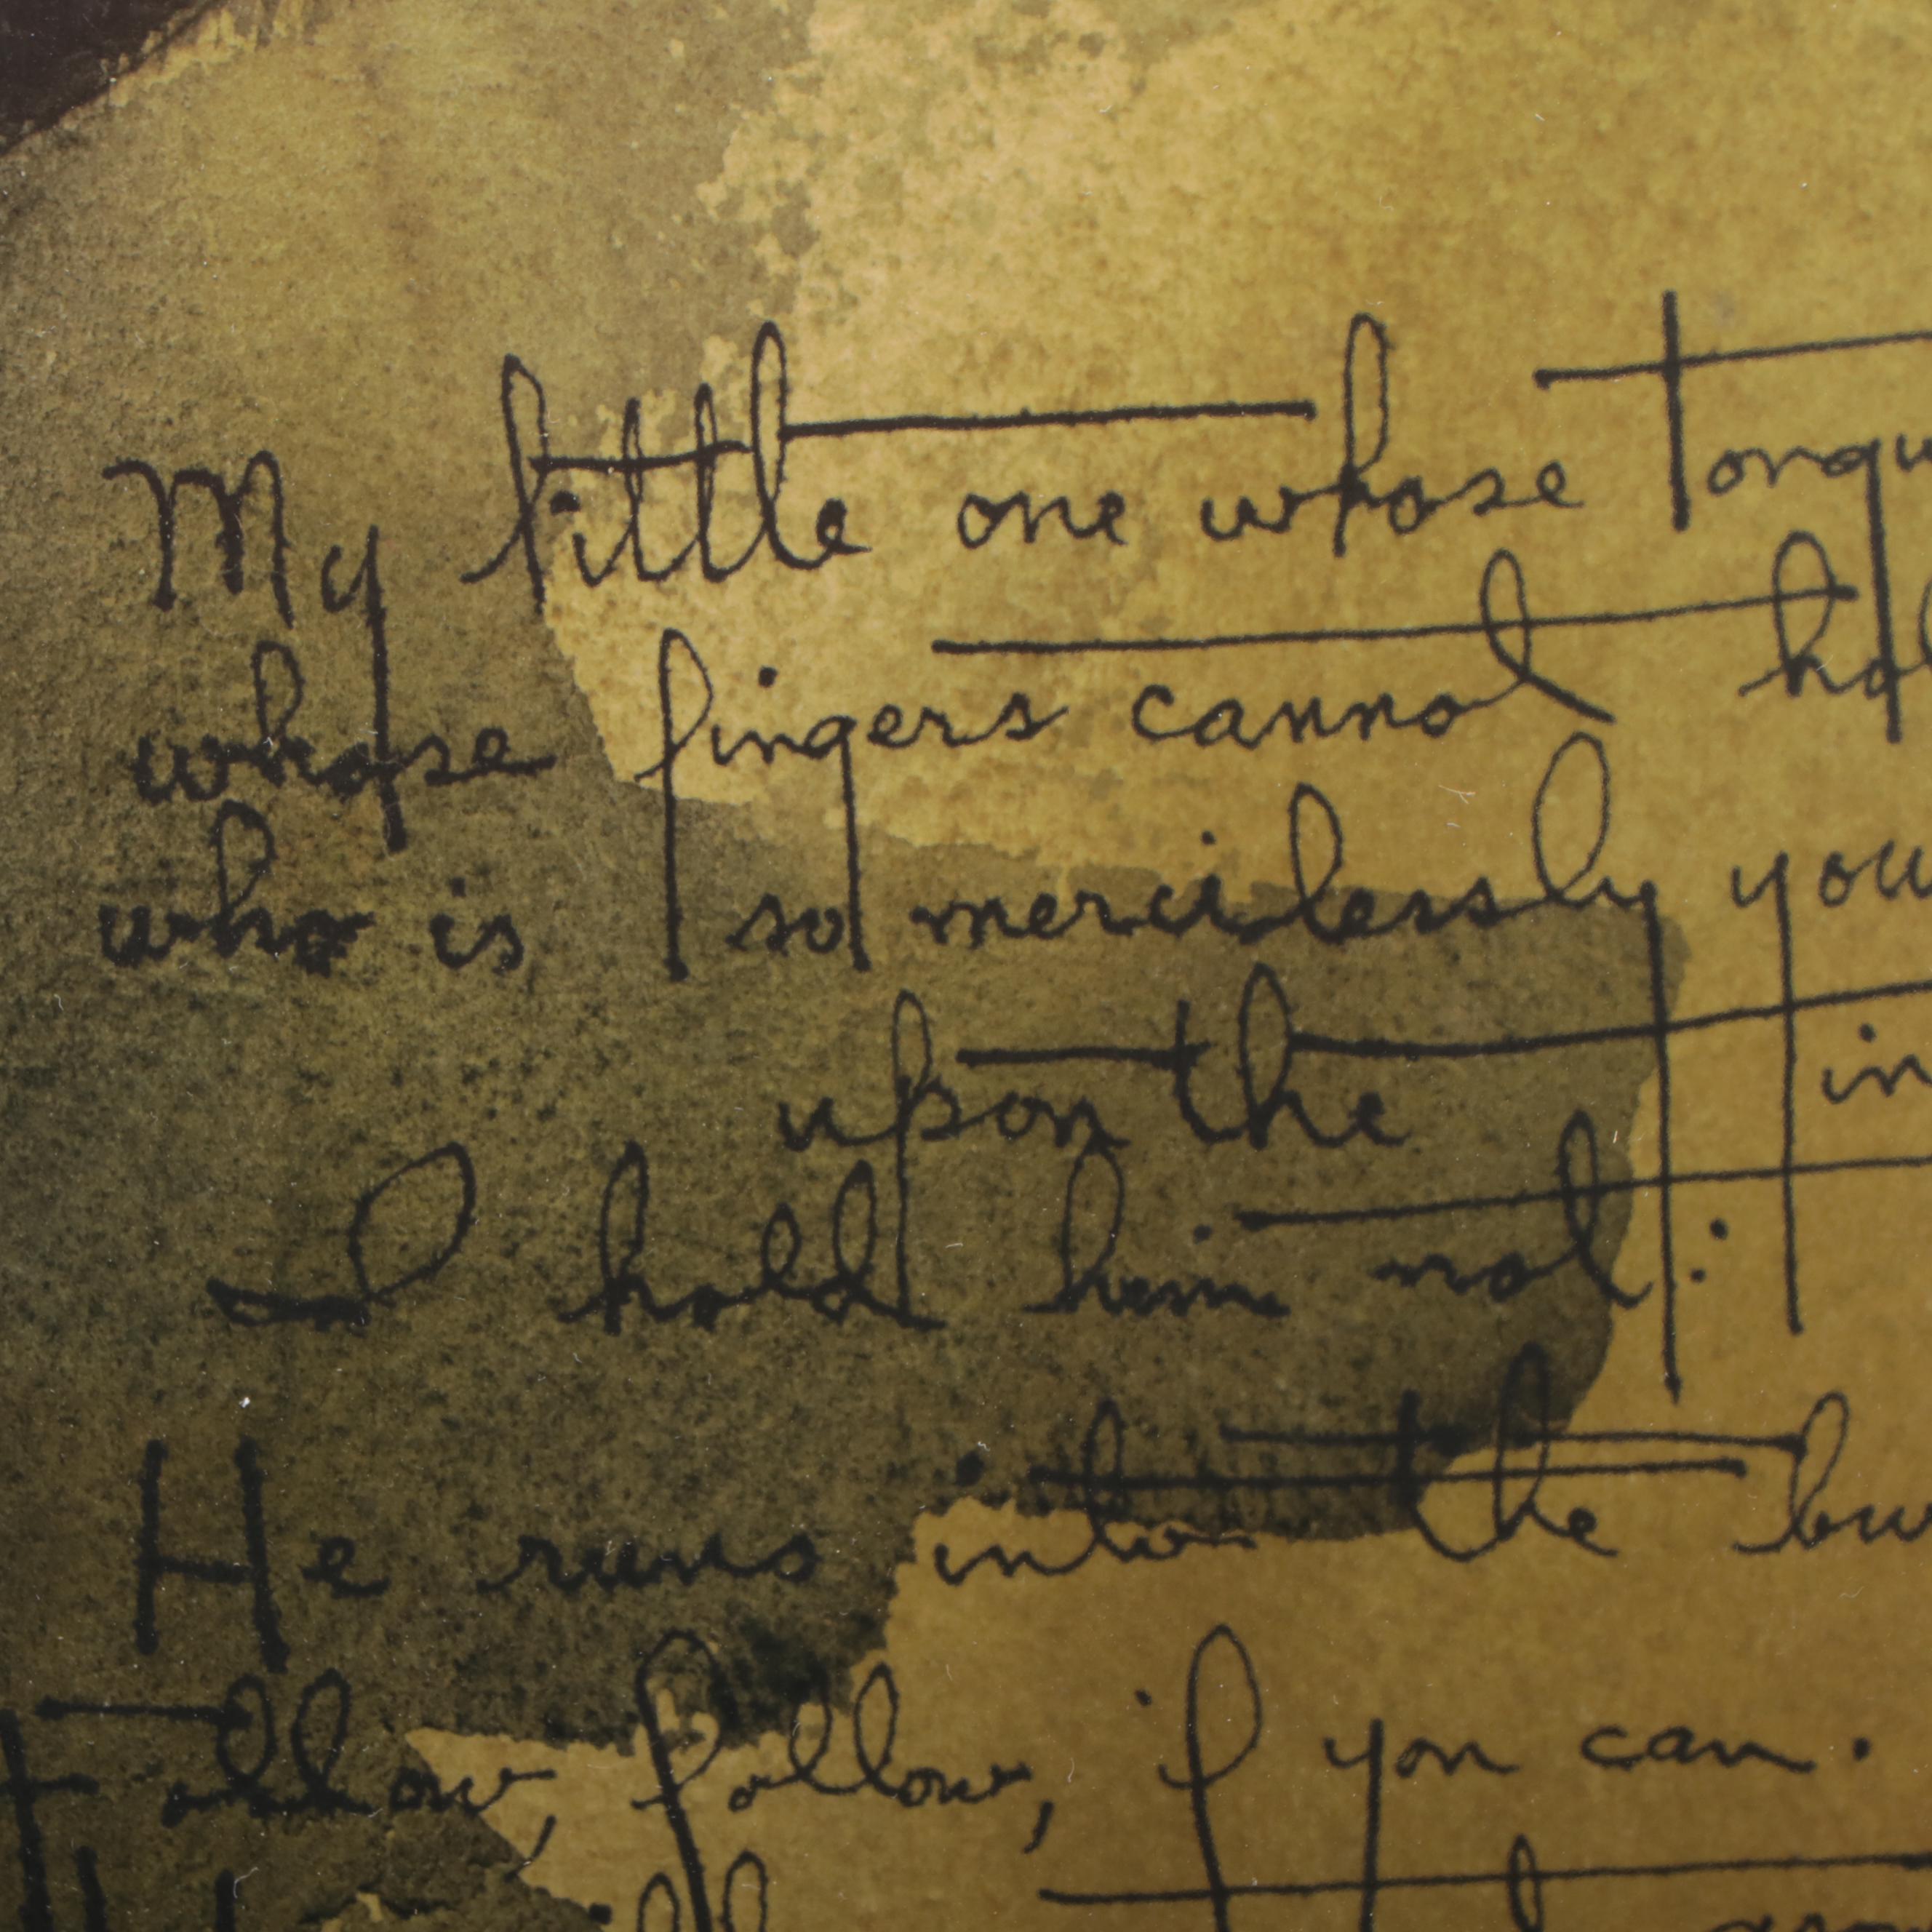 My little one whose tongu
whose fingers cannot hol
who is so mercilessly you
upon the in
I hold him not:
He runs into the bu
Follow, follow, if you can.